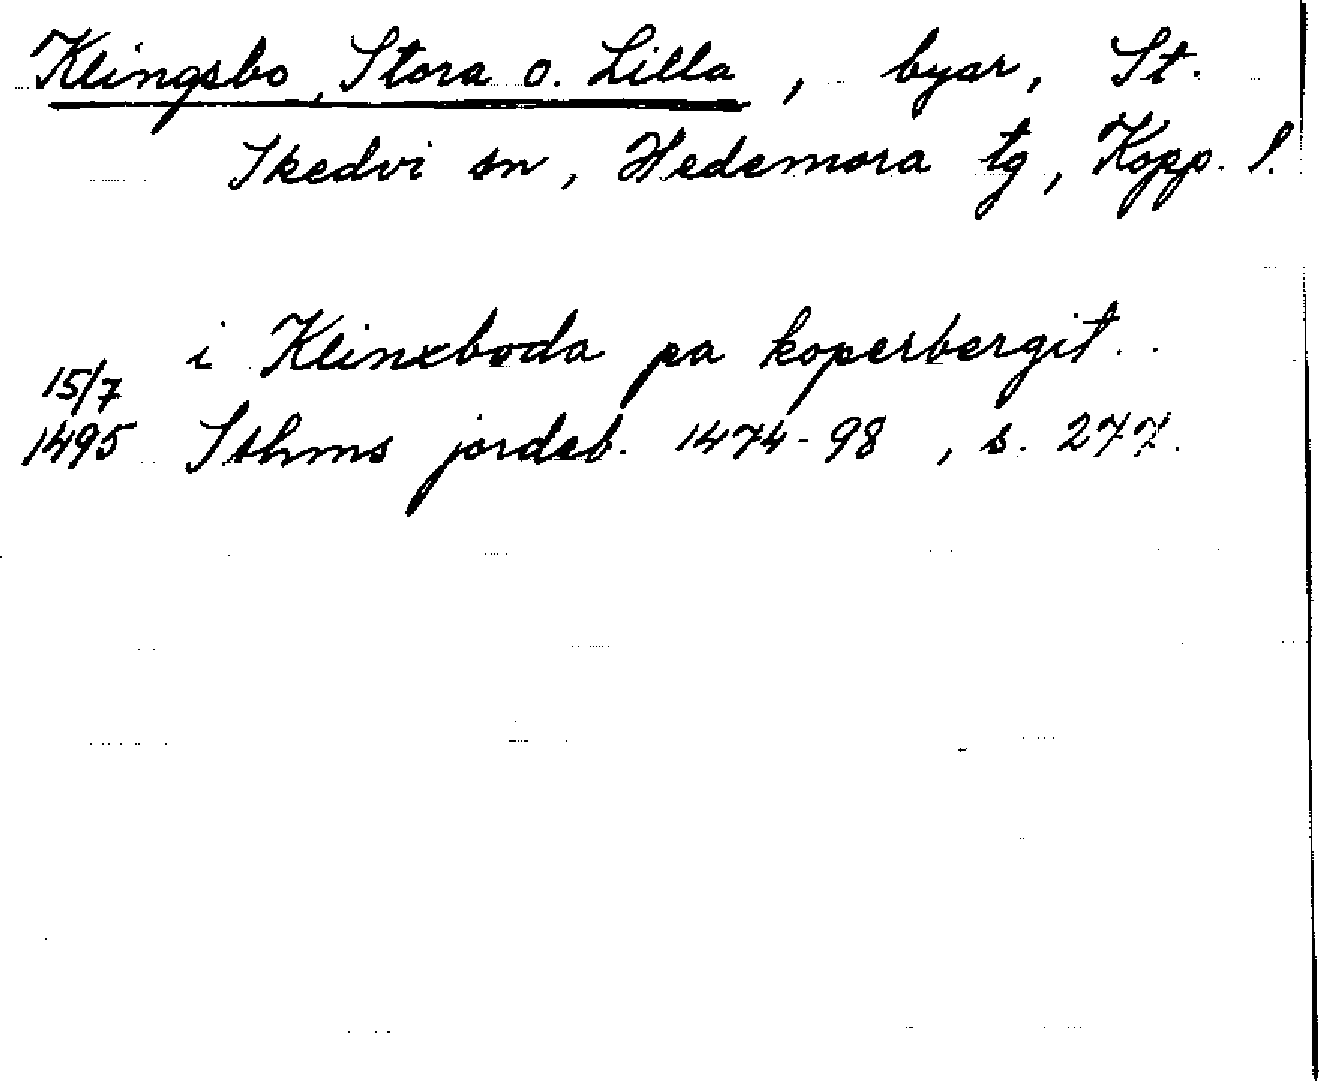 Klingsbo, Stora o. Lilla, byar, St.
Skedvi sn, Hedemora tg, Kopp. l.
i Klinxboda pa koperbergit.
15/7
1495 Sthms jordeb. 1474-98, s. 277.